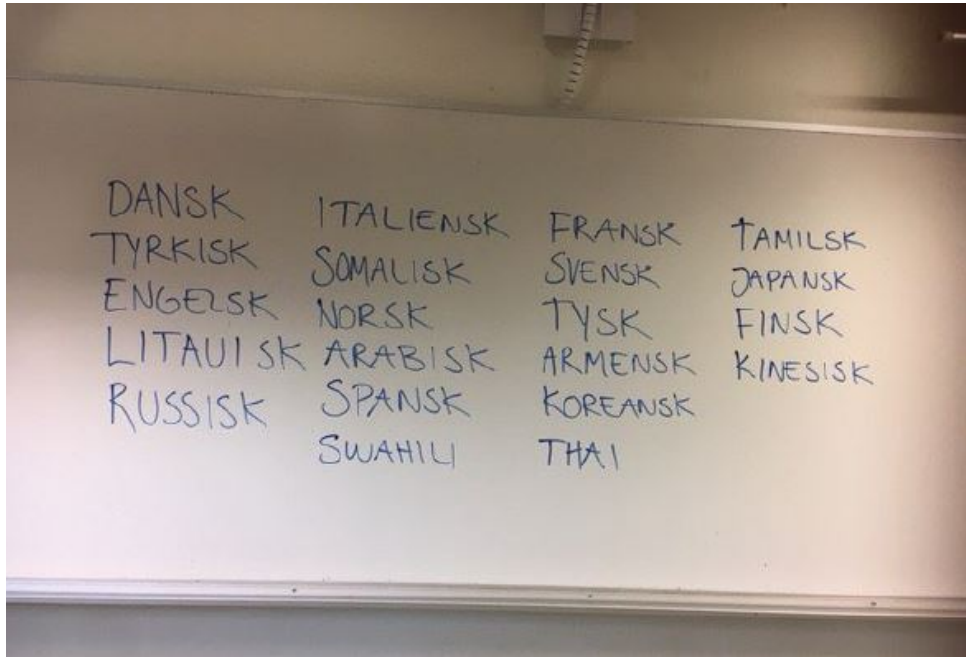 DANSK
TYRKISK
ENGELSK
LITAUISK
RUSSISK
ITALIENSK
SOMALISK
NORSK
ARABISK
SPANSK
SWAHILI
FRANSK
SVENSK
TYSK
ARMENSK
KOREANSK
THAI
TAMILSK
JAPANSK
FINSK
KINESISK